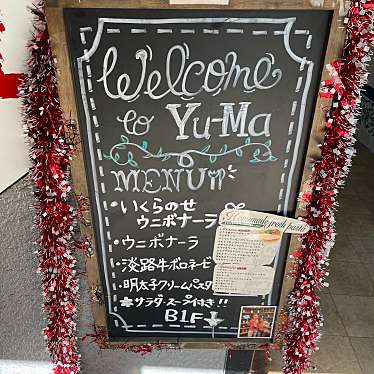 Welcome
to Yu-Ma
MENU
・いくらのせ
ウニボナーラ
・ウニボナーラ
・淡路牛ボロネーゼ
・明太子クリームパスタ
サラダ スープ付き!!
B1F ↓
Homemade fresh pasta